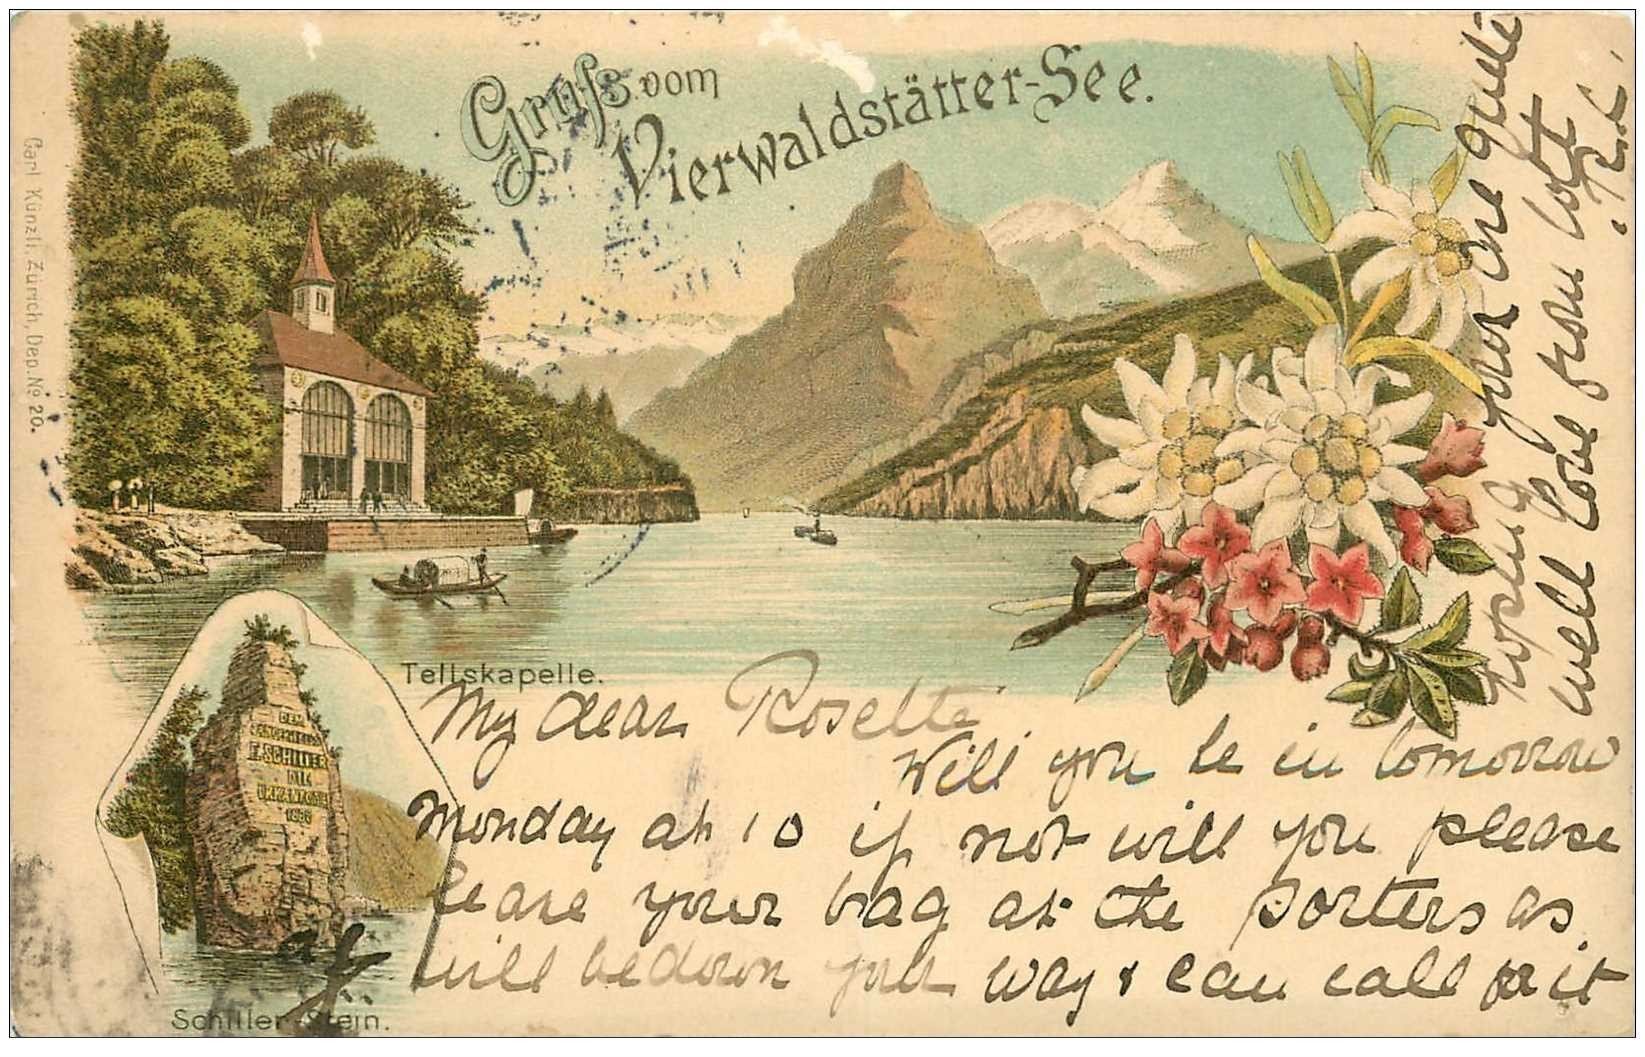 Gruss vom
Vierwaldstätter-See.
Carl Künzli, Zürich, Dep. No 20.
Tellskapelle.
DEM
F. SCHILLER
DIE
URKANTONE
Schiller-Stein.
My dear Rosette
Will you be in tomorrow
Monday at 10 if not will you please
leave your bag at the porters as
will be down your way & can call for it
Hoping you are quite
well love from Lott